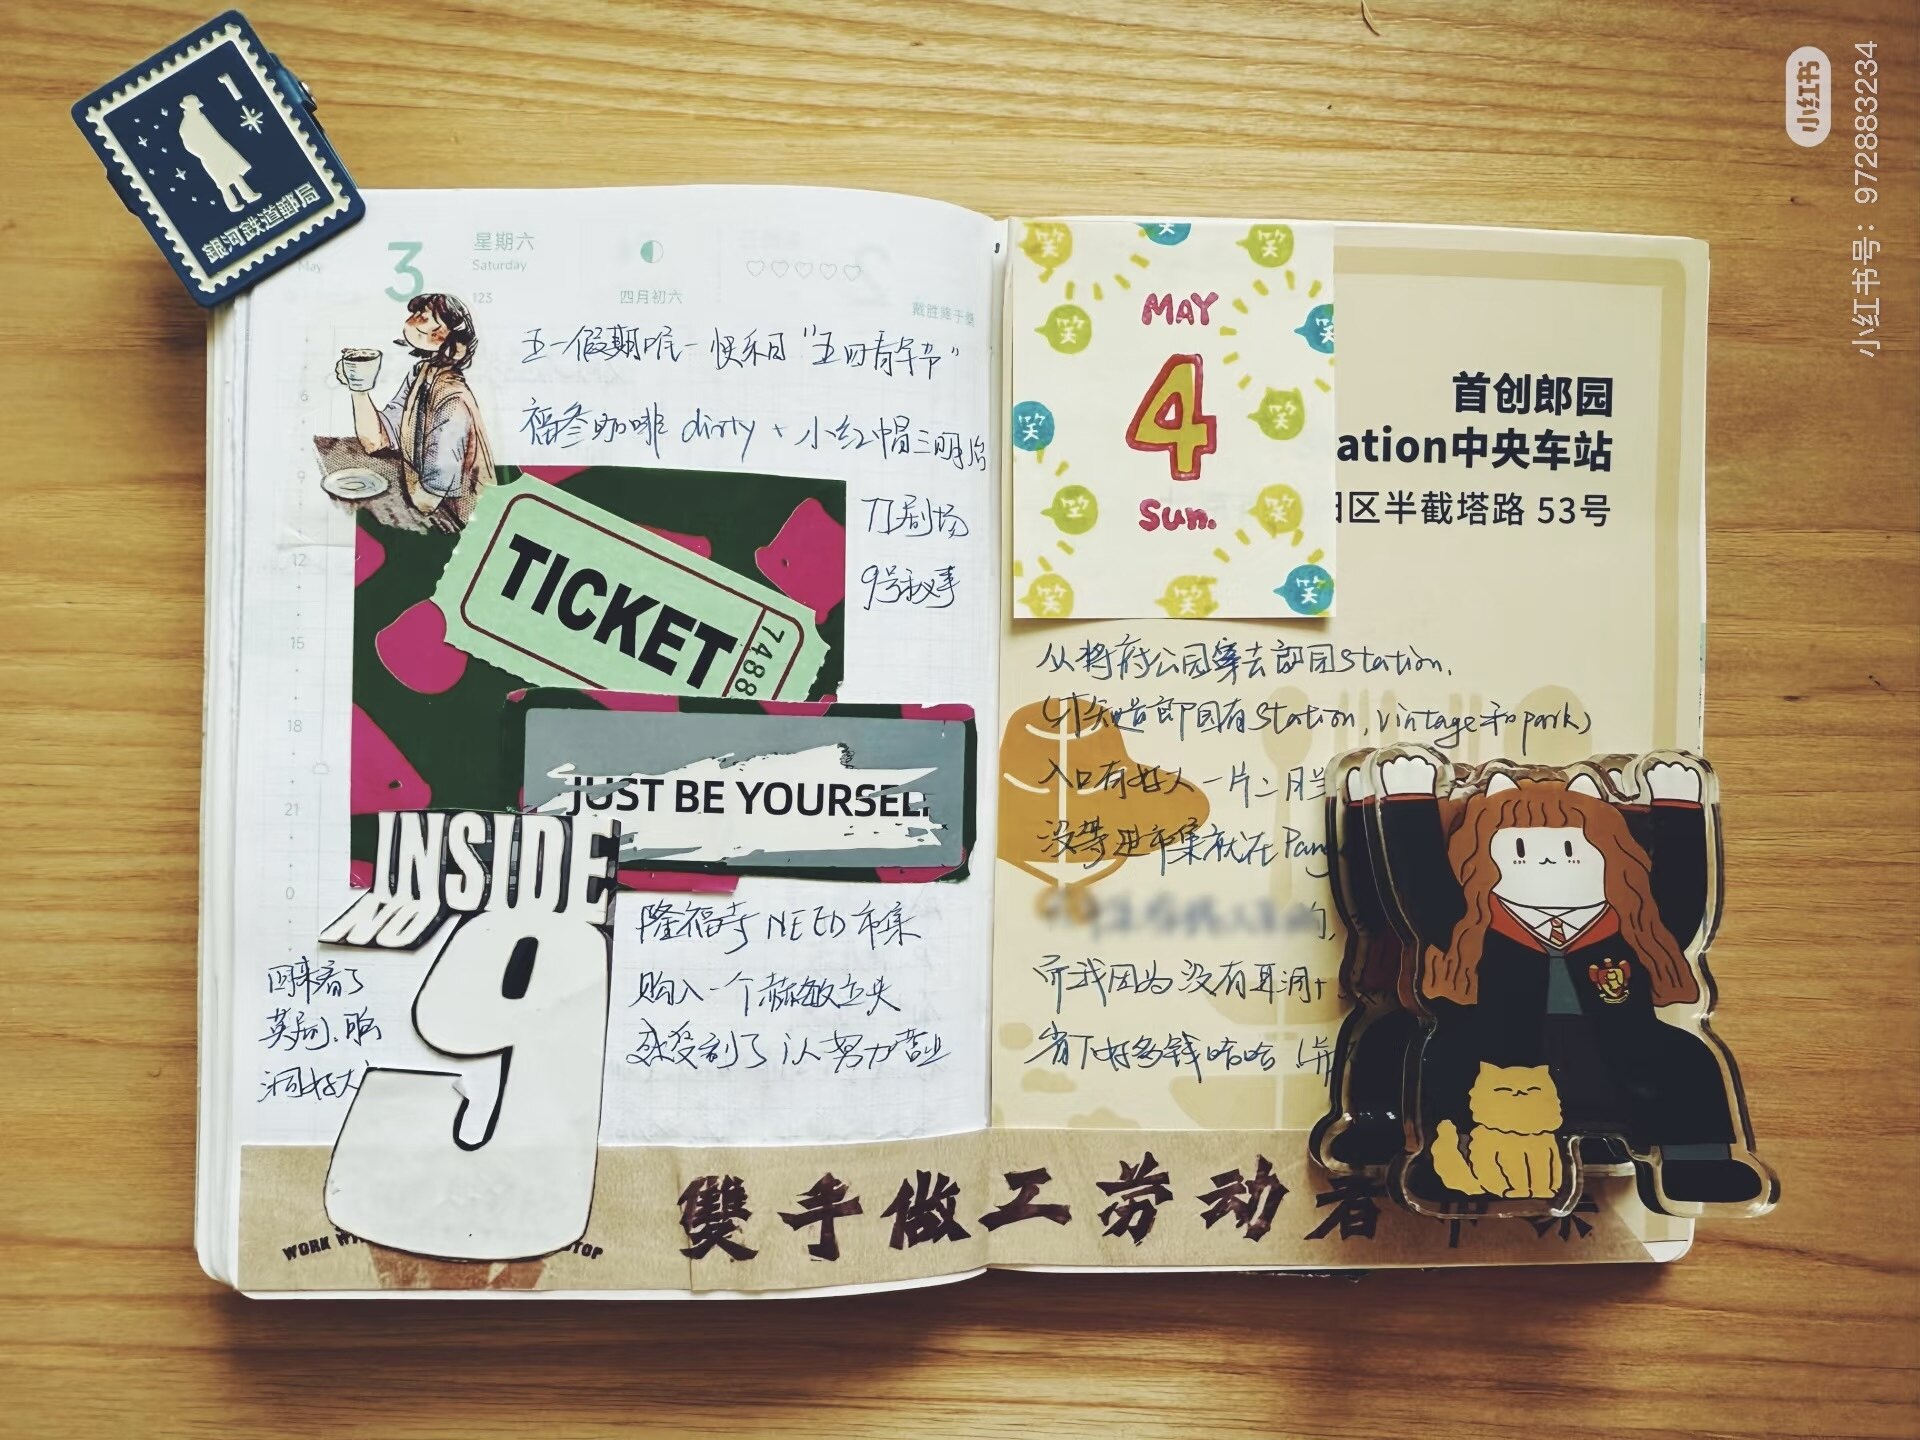 小红书
小红书号：972883234
1
銀河鉄道郵局
May
3
星期六
Saturday
123
四月初六
戴胜降于桑
五一假期唯一快乐日“五四青年节”
福叁咖啡 dirty + 小红帽三明治
71剧场
9号秘事
6
9
12
15
18
21
0
TICKET
7488
JUST BE YOURSELF
INSIDE
NO
9
回来看了
英剧，脑
洞好大
隆福寺 NEED 市集
购入一个赫敏立夹
感受到了i人努力营业
笑
笑
笑
笑
笑
笑
笑
笑
笑
笑
笑
MAY
4
Sun.
首创郎园
ation中央车站
区半截塔路 53号
从将府公园穿去郎园Station.
(才知道郎园有Station, vintage和park)
入口有好大一片二月兰
没等进市集就在Pang
的,
而我因为没有耳洞+
省下好多钱哈哈
WORK WI
TOP
雙手做工劳动者市集